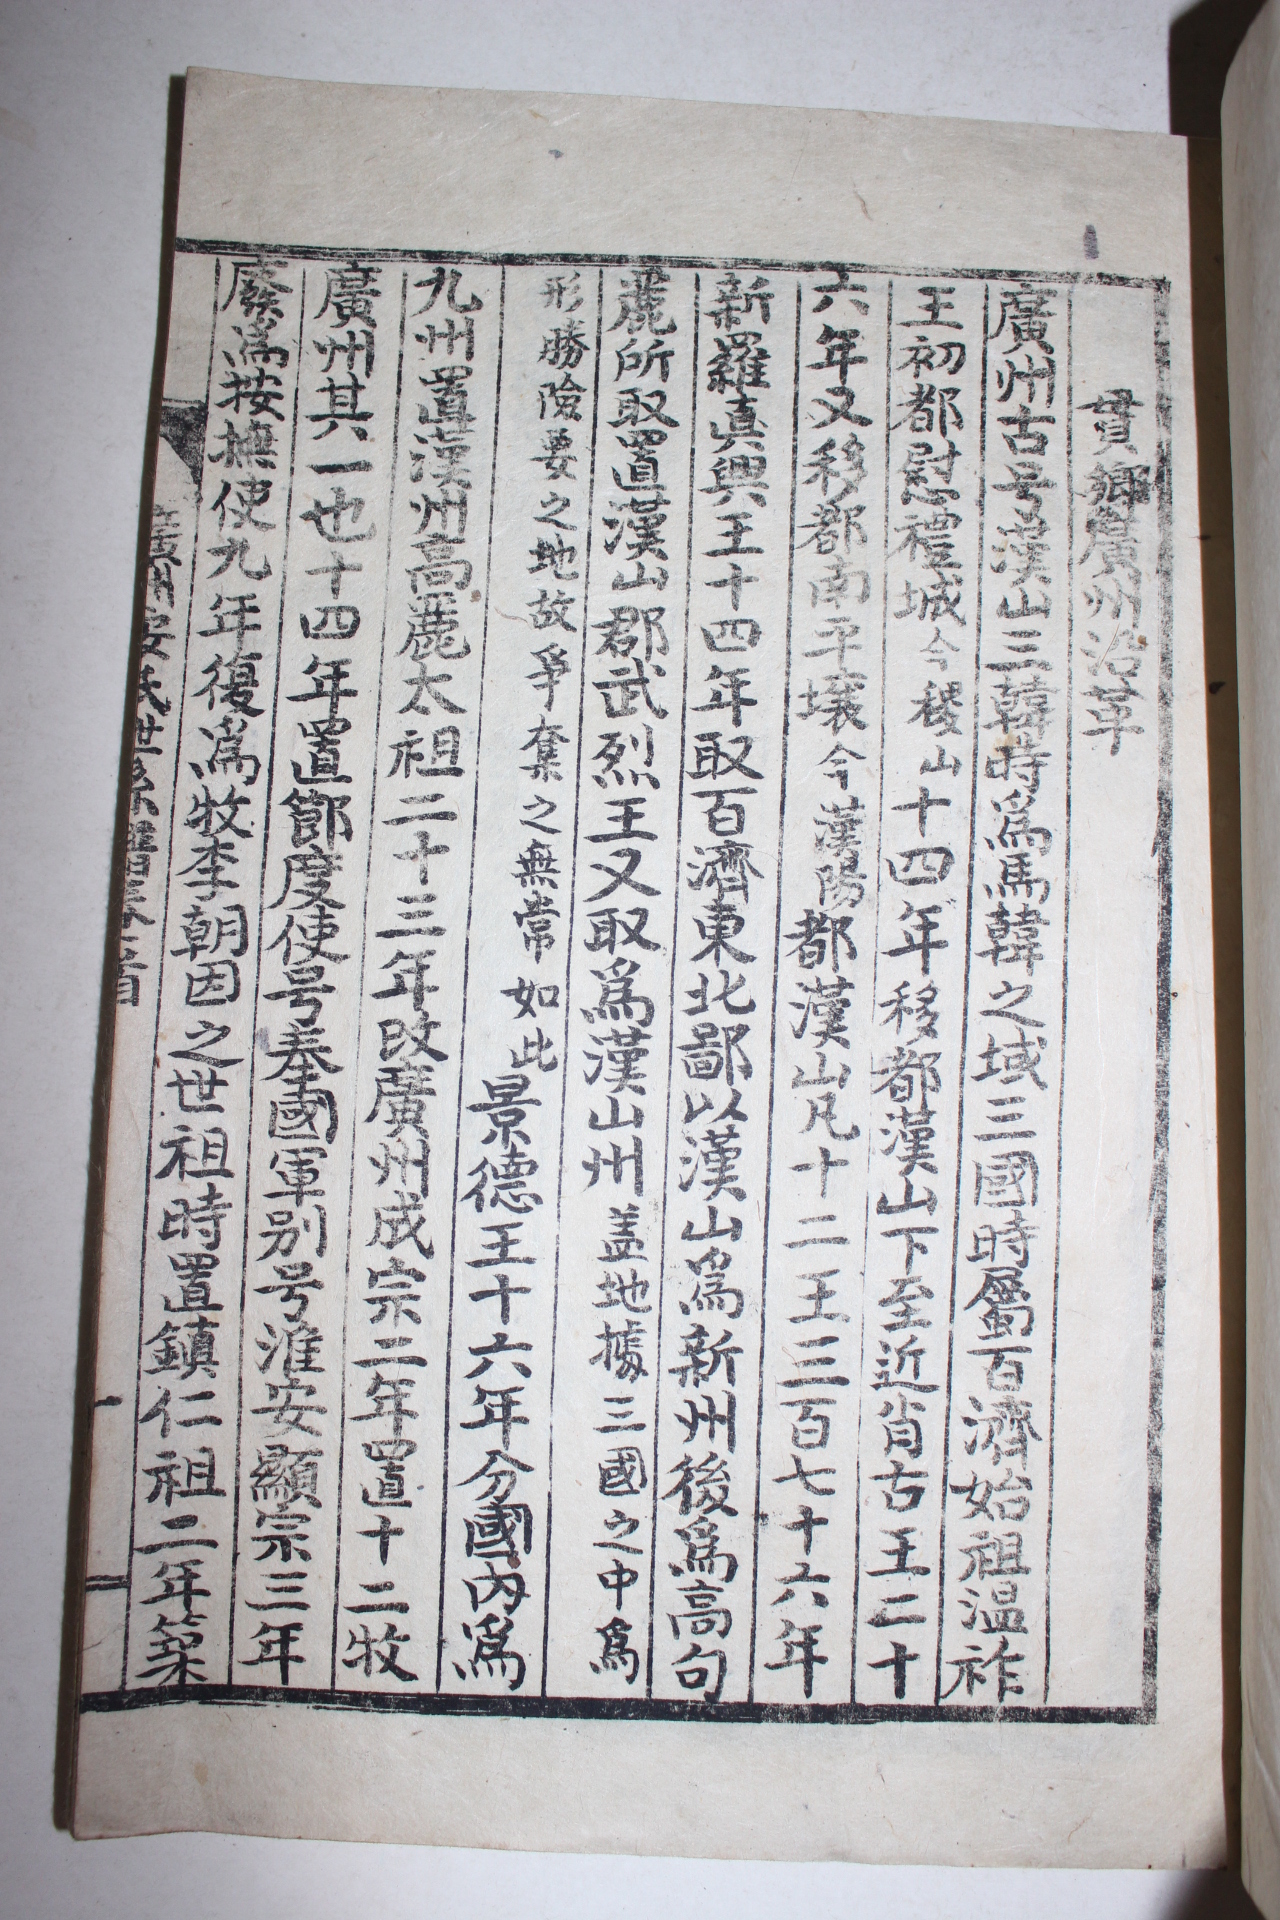 貫鄕廣州沿革
廣州古号漢山三韓時爲馬韓之域三國時屬百濟始祖温祚
王初都慰禮城今稷山十四年移都漢山下至近肖古王二十
六年又移都南平壤今漢陽都漢山凡十二王三百七十六年
新羅眞興王十四年取百濟東北鄙以漢山爲新州後爲高句
麗所取置漢山郡武烈王又取爲漢山州盖地據三國之中爲
形勝險要之地故爭奪之無常如此景德王十六年分國內爲
九州置漢州高麗太祖二十三年改廣州成宗二年置十二牧
廣州其一也十四年置節度使号奉國軍别号淮安顯宗三年
廢爲按撫使九年復爲牧李朝因之世祖時置鎭仁祖二年築
廣州安氏世系譜卷首